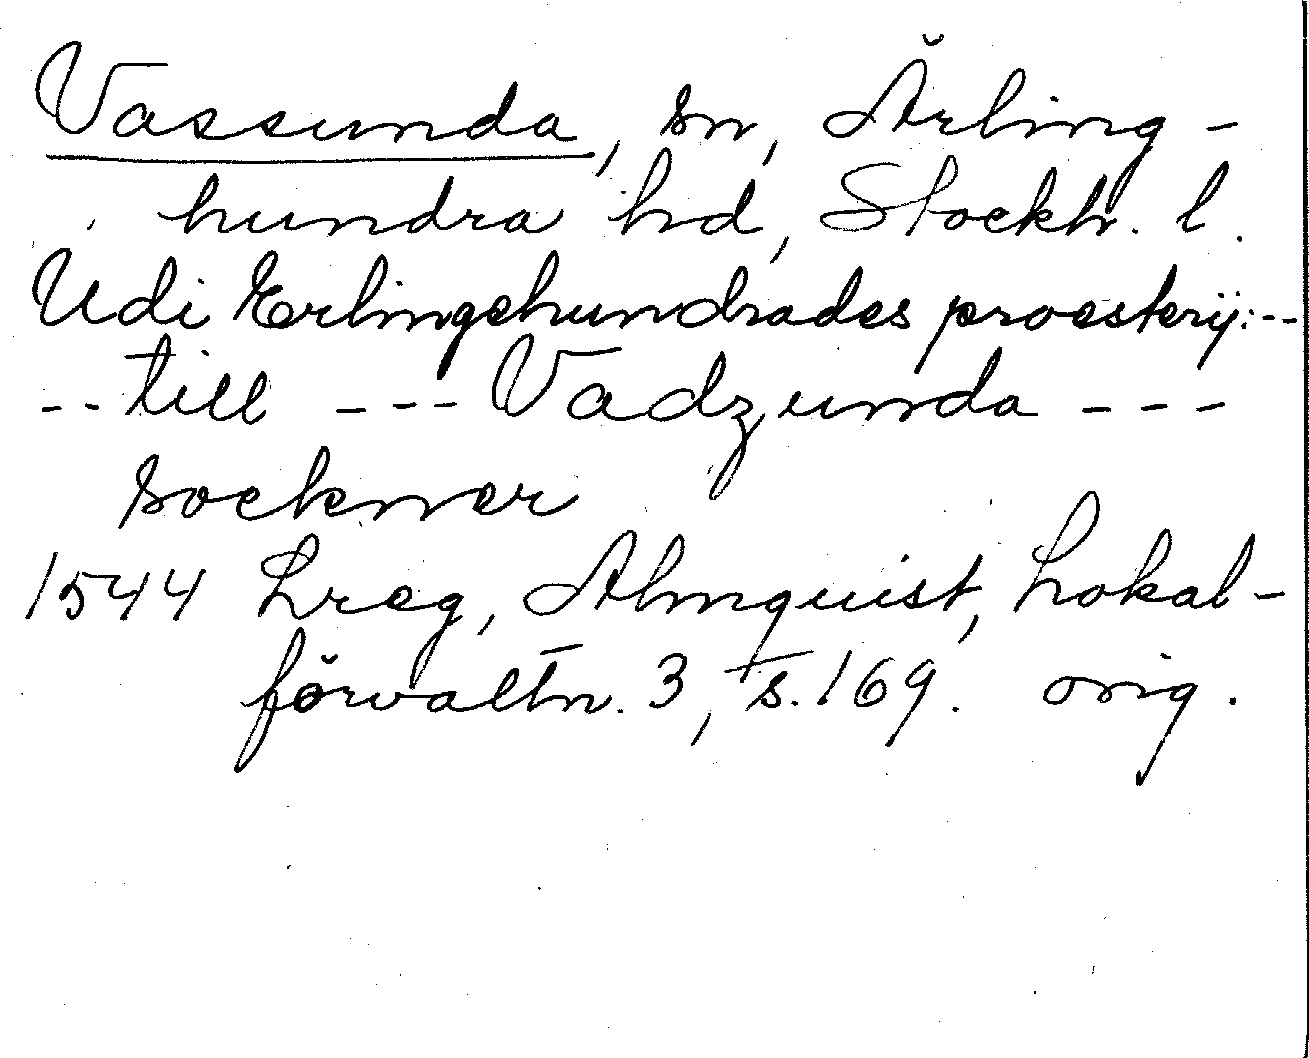 Vassunda, sn, Ärling-
hundra hd, Stockh. l.
Udi Erlingehundrades proesterij:--
-- till --- Vadzunda ---
sockner
1544 Lreg, Almquist, Lokal-
förvaltn. 3, s. 169. orig.